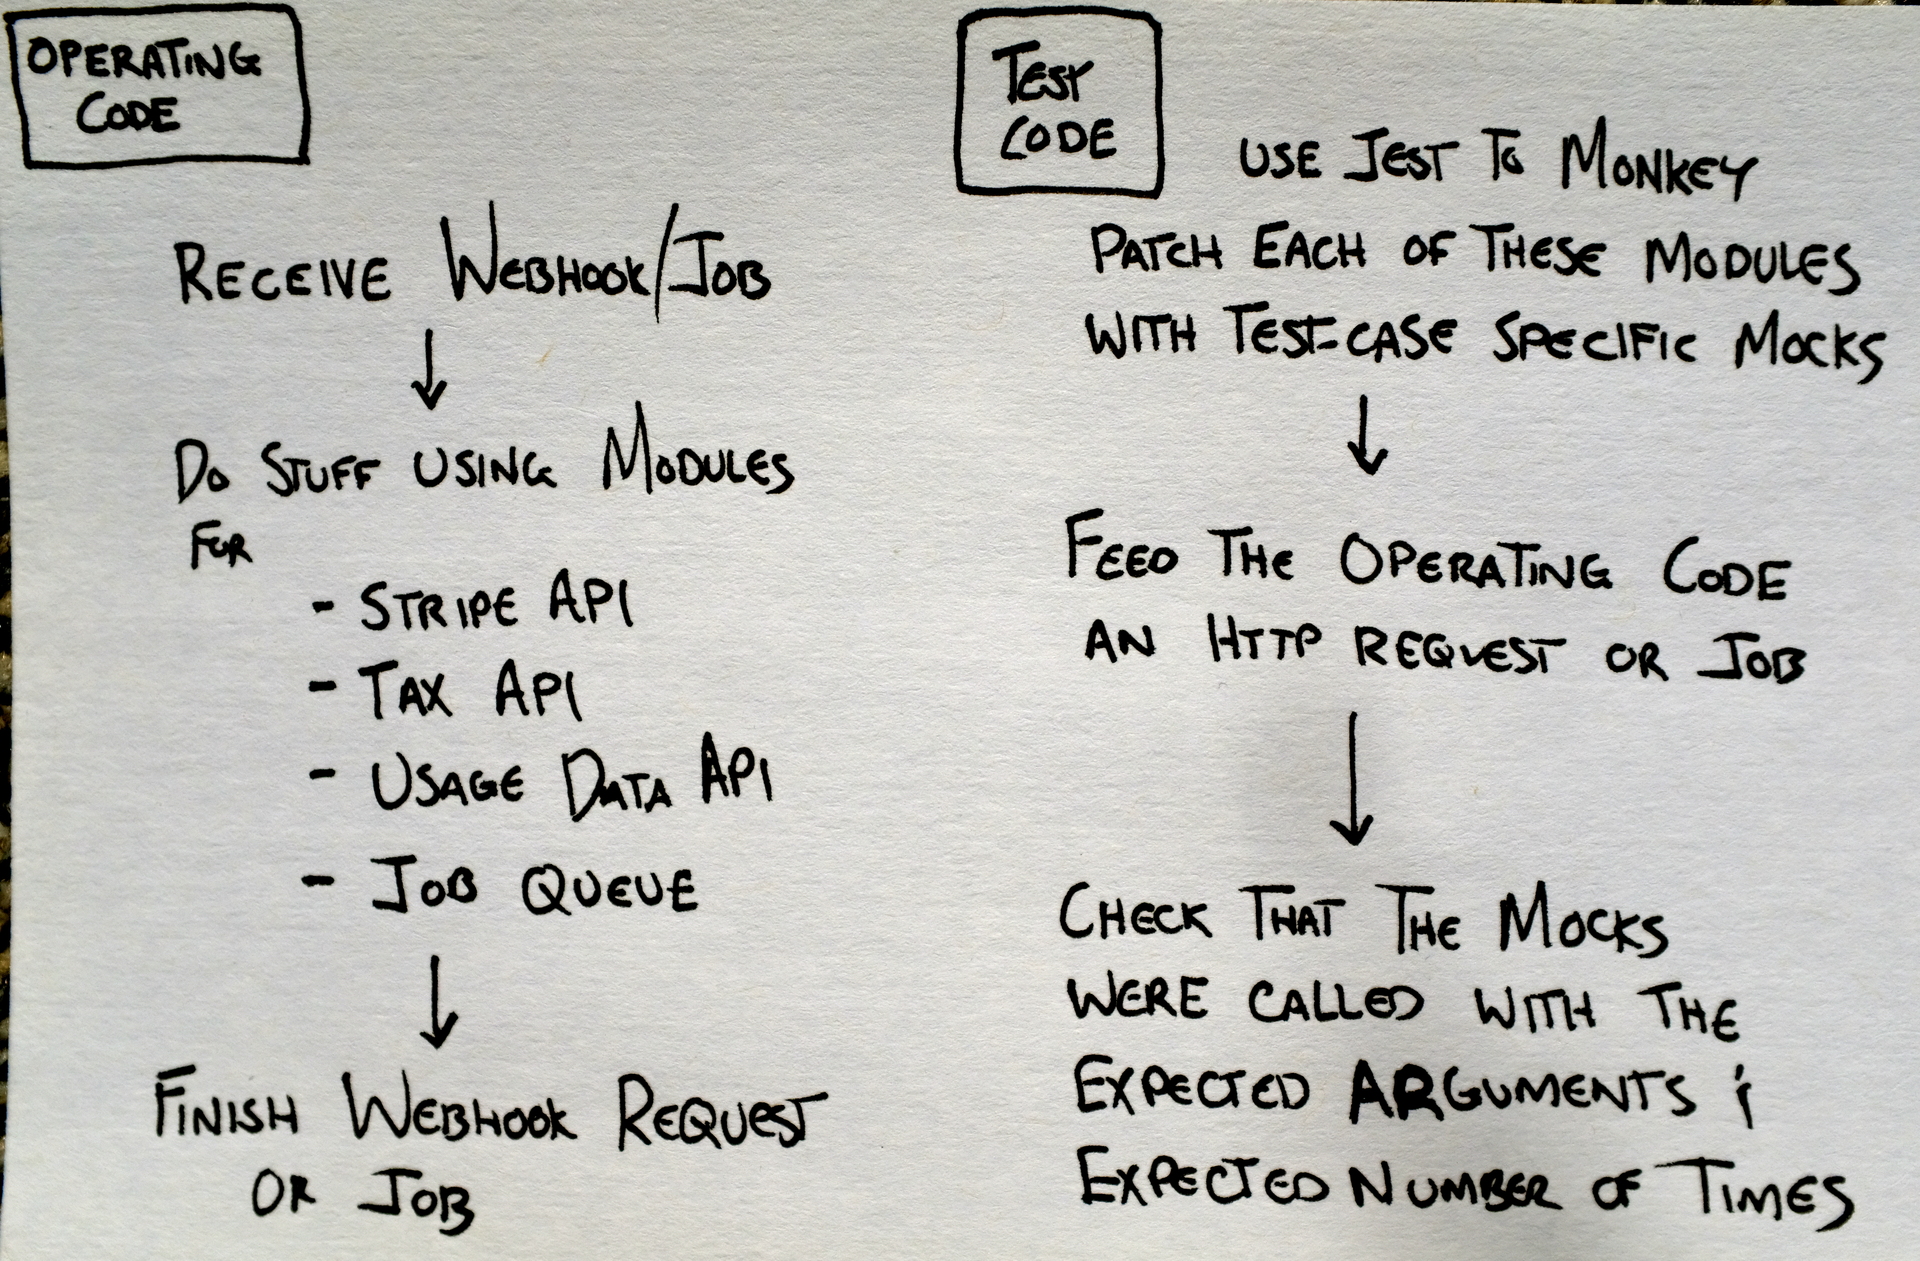 OPERATING
CODE
RECEIVE WEBHOOK/JOB
DO STUFF USING MODULES
FOR
- STRIPE API
- TAX API
- USAGE DATA API
- JOB QUEUE
FINISH WEBHOOK REQUEST
OR JOB
TEST
CODE
USE JEST TO MONKEY
PATCH EACH OF THESE MODULES
WITH TEST-CASE SPECIFIC MOCKS
FEED THE OPERATING CODE
AN HTTP REQUEST OR JOB
CHECK THAT THE MOCKS
WERE CALLED WITH THE
EXPECTED ARGUMENTS &
EXPECTED NUMBER OF TIMES